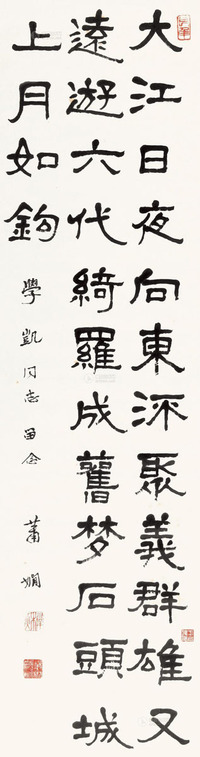 大江日夜向東流聚義群雄又
遠遊六代綺羅成舊梦石頭城
上月如鉤
學凱同志留念 蕭嫻